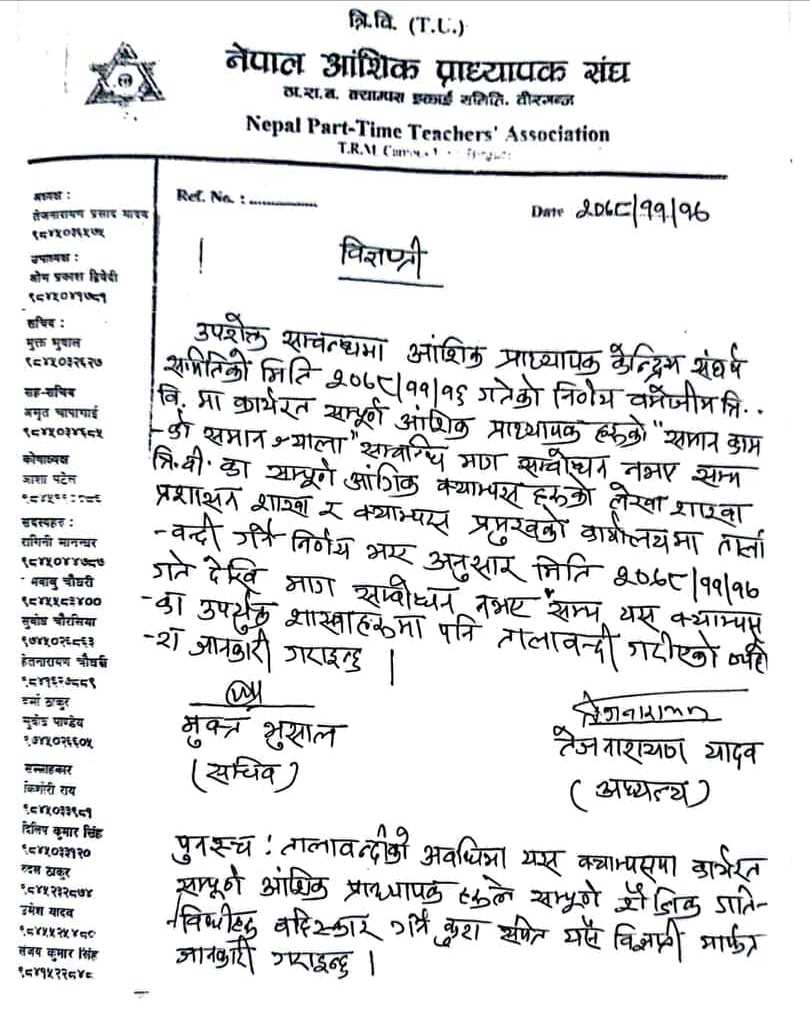 त्रि.वि. (T.U.)
नेपाल आंशिक प्राध्यापक संघ
ठा.रा.ब. क्याम्पस इकाई समिति, वीरगन्ज
Nepal Part-Time Teachers' Association
T.R.M
Ref. No. : ..............
Date २०६८/११/१६
विज्ञप्ती
उपरोक्त सम्बन्धमा आंशिक प्राध्यापक केन्द्रिय संघर्ष
समितिको मिति २०६८/११/१६ गतेको निर्णय बमोजीम त्रि..
वि. मा कार्यरत सम्पूर्ण आंशिक प्राध्यापक हरुको "समान काम
-को समान ज्याला" सम्बन्धि माग सम्बोधन नभए सम्म
त्रि.वी. का सम्पूर्ण आंगिक क्याम्पस हरुको लेखा शाखा
प्रशासन शाखा र क्याम्पस प्रमुखको कार्यालयमा ताला
-वन्दी गर्ने निर्णय भए अनुसार मिति २०६८/११/१६
गते देखि माग सम्बोधन नभए सम्म यस क्याम्पस
-का उपर्युक्त शाखाहरुमा पनि तालावन्दी गरीएको व्यहो
-रा जानकारी गराइन्छ |
मुक्त भुसाल
(सचिव)
तेजनारायण
तेजनारायण यादव
(अध्यक्ष)
पुनश्च : तालावन्दीको अवधिमा यस क्याम्पसमा कार्यरत
सम्पूर्ण आंशिक प्राध्यापक हरुले सम्पूर्ण शैक्षिक गति-
-विधीहरु वहिस्कार गर्ने कुरा समेत यसै विज्ञप्ती मार्फत
जानकारी गराइन्छ |
अध्यक्ष :
तेजनारायण प्रसाद यादव
९८४५०३६५७५
उपाध्यक्ष :
ओम प्रकाश द्विवेदी
९८४५०४१७८१
सचिव :
मुक्त भुषाल
९८४५०३२६२७
सह-सचिव
अमृत चापागाई
९८४५०३४६८५
कोषाध्यक्ष
आशा पटेल
सदस्यहरु :
रागिनी मानन्धर
९८४५०४४७८७
बाबु चौधरी
९८४५५८३४००
सुबोध चौरसिया
९७४५०२६८६३
हेतनारायण चौधरी
ठाकुर
सुबोध पाण्डेय
९७४५०२६६०५
सल्लाहकार
किशोरी राय
९८४५०३३९८१
दिलिप कुमार सिंह
९८४५०३३१२०
ठाकुर
९८४५२३२८७४
उमेश यादव
संजय कुमार सिंह
९८४१५२२८४८